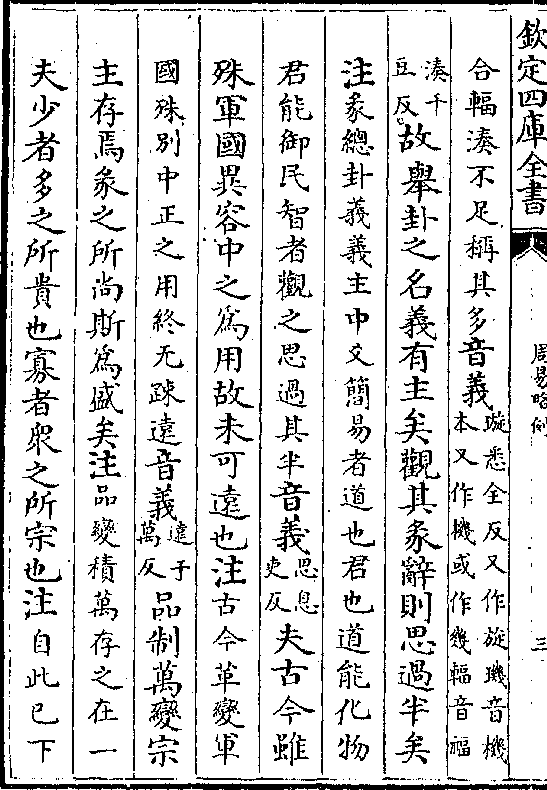 欽定四庫全書
周易略例
三
合輻湊不足稱其多音義璇悉全反又作旋璣音機
本又作機或作幾輻音福
湊千
豆反故舉卦之名義有主矣觀其彖辭則思過半矣
注彖總卦義義主中爻簡易者道也君也道能化物
君能御民智者觀之思過其半音義思息
吏反夫古今雖
殊軍國異容中之為用故未可遠也注古今革變軍
國殊別中正之用終无踈遠音義遠于
萬反品制萬變宗
主存焉彖之所尚斯為盛矣注品變積萬存之在一
夫少者多之所貴也寡者衆之所宗也注自此已下